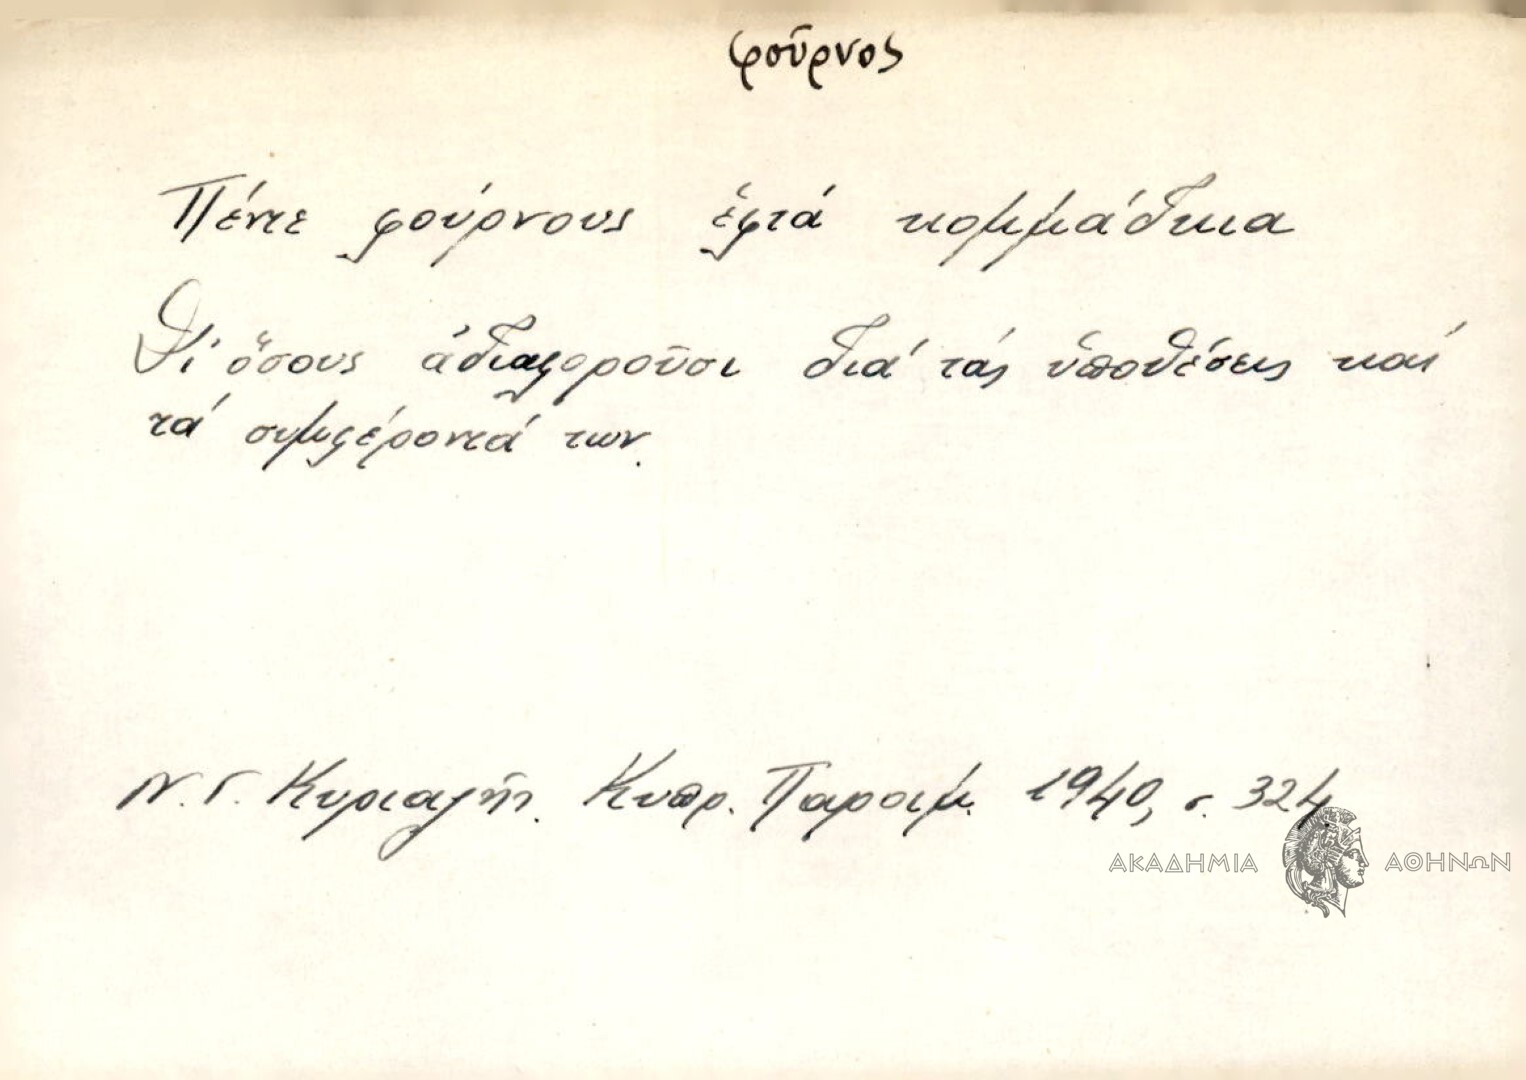 φοῦρνος
Πέντε φούρνους ἑφτά κομμάδκια
Δι' ὅσους ἀδιαφοροῦσι διά τάς ὑποθέσεις καί
τά συμφέροντά των.
Ν. Γ. Κυριαζῆς. Κυπρ. Παροιμ. 1940, σ. 324
ΑΚΑΔΗΜΙΑ ΑΘΗΝΩΝ